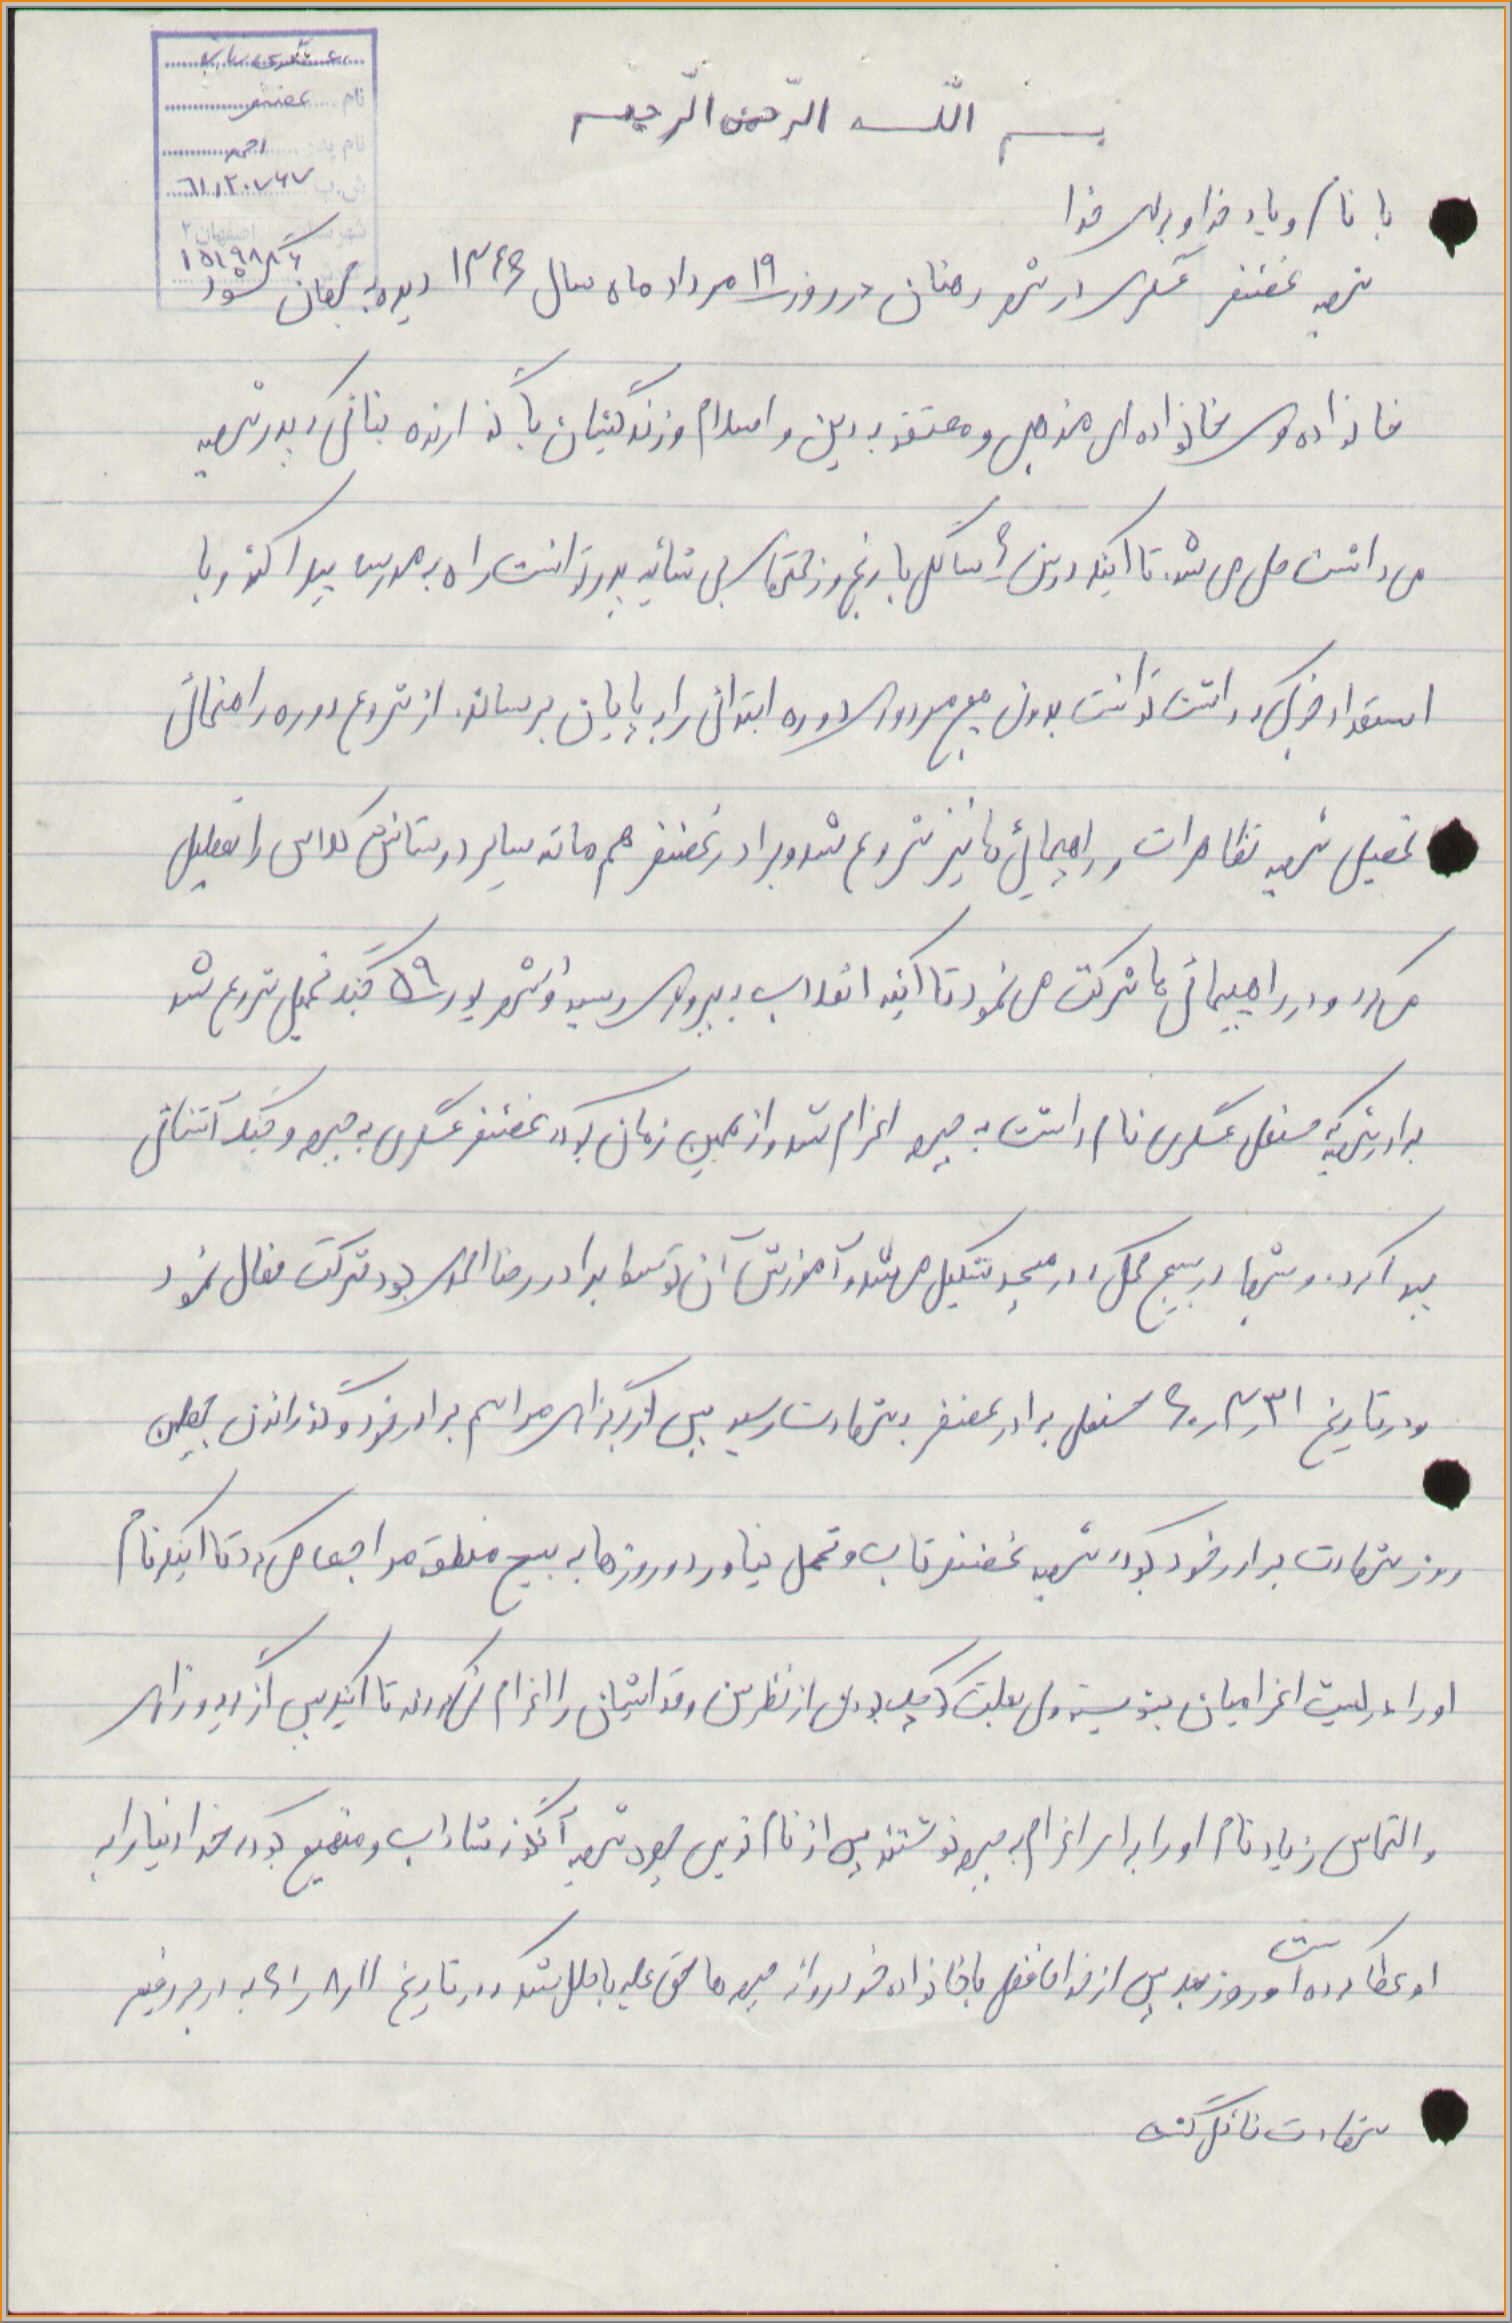 عسگری رنانی
نام غضنفر
نام پدر احمد
ش.پ ۶۱۱۲۰۷۶۷
شهرستان اصفهان ۲
۱۵۱۹۸۸۶
بسم اللّه الرّحمن الرّحیم
با نام و یاد خدا و برای خدا
شهید غضنفر عسگری در شهر رهنان در روز ۱۹ مرداد ماه سال ۱۳۴۶ دیده به جهان گشود
خانواده وی خانواده ای مذهبی و معتقد به دین و اسلام و زندگیشان با گذراندن بنائی که پدر شهید
می داشت طی می شد. تا اینکه در سن ۶ سالگی با رنج و زحمتهای بی شائبه پدر توانست راه به مدرسه پیدا کند و با
استعداد خوبی که داشت توانست بدون هیچ مردودی دوره ابتدائی را به پایان برساند. از شروع دوره راهنمائی
تحصیلی شهید تظاهرات و راهپیمائی ها نیز شروع شد و برادر غضنفر هم مانند سایر دوستانش کلاس را تعطیل
می کرد و در راهپیمائی ها شرکت می نمود تا اینکه انقلاب به پیروزی رسید و شهریور ۵۹ جنگ تحمیلی شروع شد
برادر شهید که عسگری نام داشت به جبهه اعزام شد و از همین زمان بود که غضنفر عسگری به جبهه و جنگ آشنائی
پیدا کرد. و شبها در بسیج محل که در مسجد تشکیل می شد و آموزش آن توسط برادر رضا احمدی بود شرکت فعال نمود
و در تاریخ ۳۱ر۳ر۶۰ برادر غضنفر به شهادت رسید پس از برگزاری مراسم برادر خود و گذراندن چهلمین
روز شهادت برادر خود بود که شهید غضنفر تاب و تحمل نیاورد و روزها به بسیج منطقه مراجعه می کرد تا اینکه نام
او را در لیست اعزامیان بنویسند ولی بعلت کوچک بودن از نظر سن و قد ایشان را اعزام نمی کردند تا اینکه پس از گریه و زاری
و التماس زیاد نام او را برای اعزام به جبهه نوشتند پس از نام نویسی چهره شهید آنگونه شاداب و بود که خدا دنیا را به
او عطا کرده است و روز بعد پس از خداحافظی با خانواده خود روانه جبهه ها حق علیه باطل شد که در تاریخ ۱۱ر۸ر۶۱ به درجه رفیع
شهادت نائل گشت